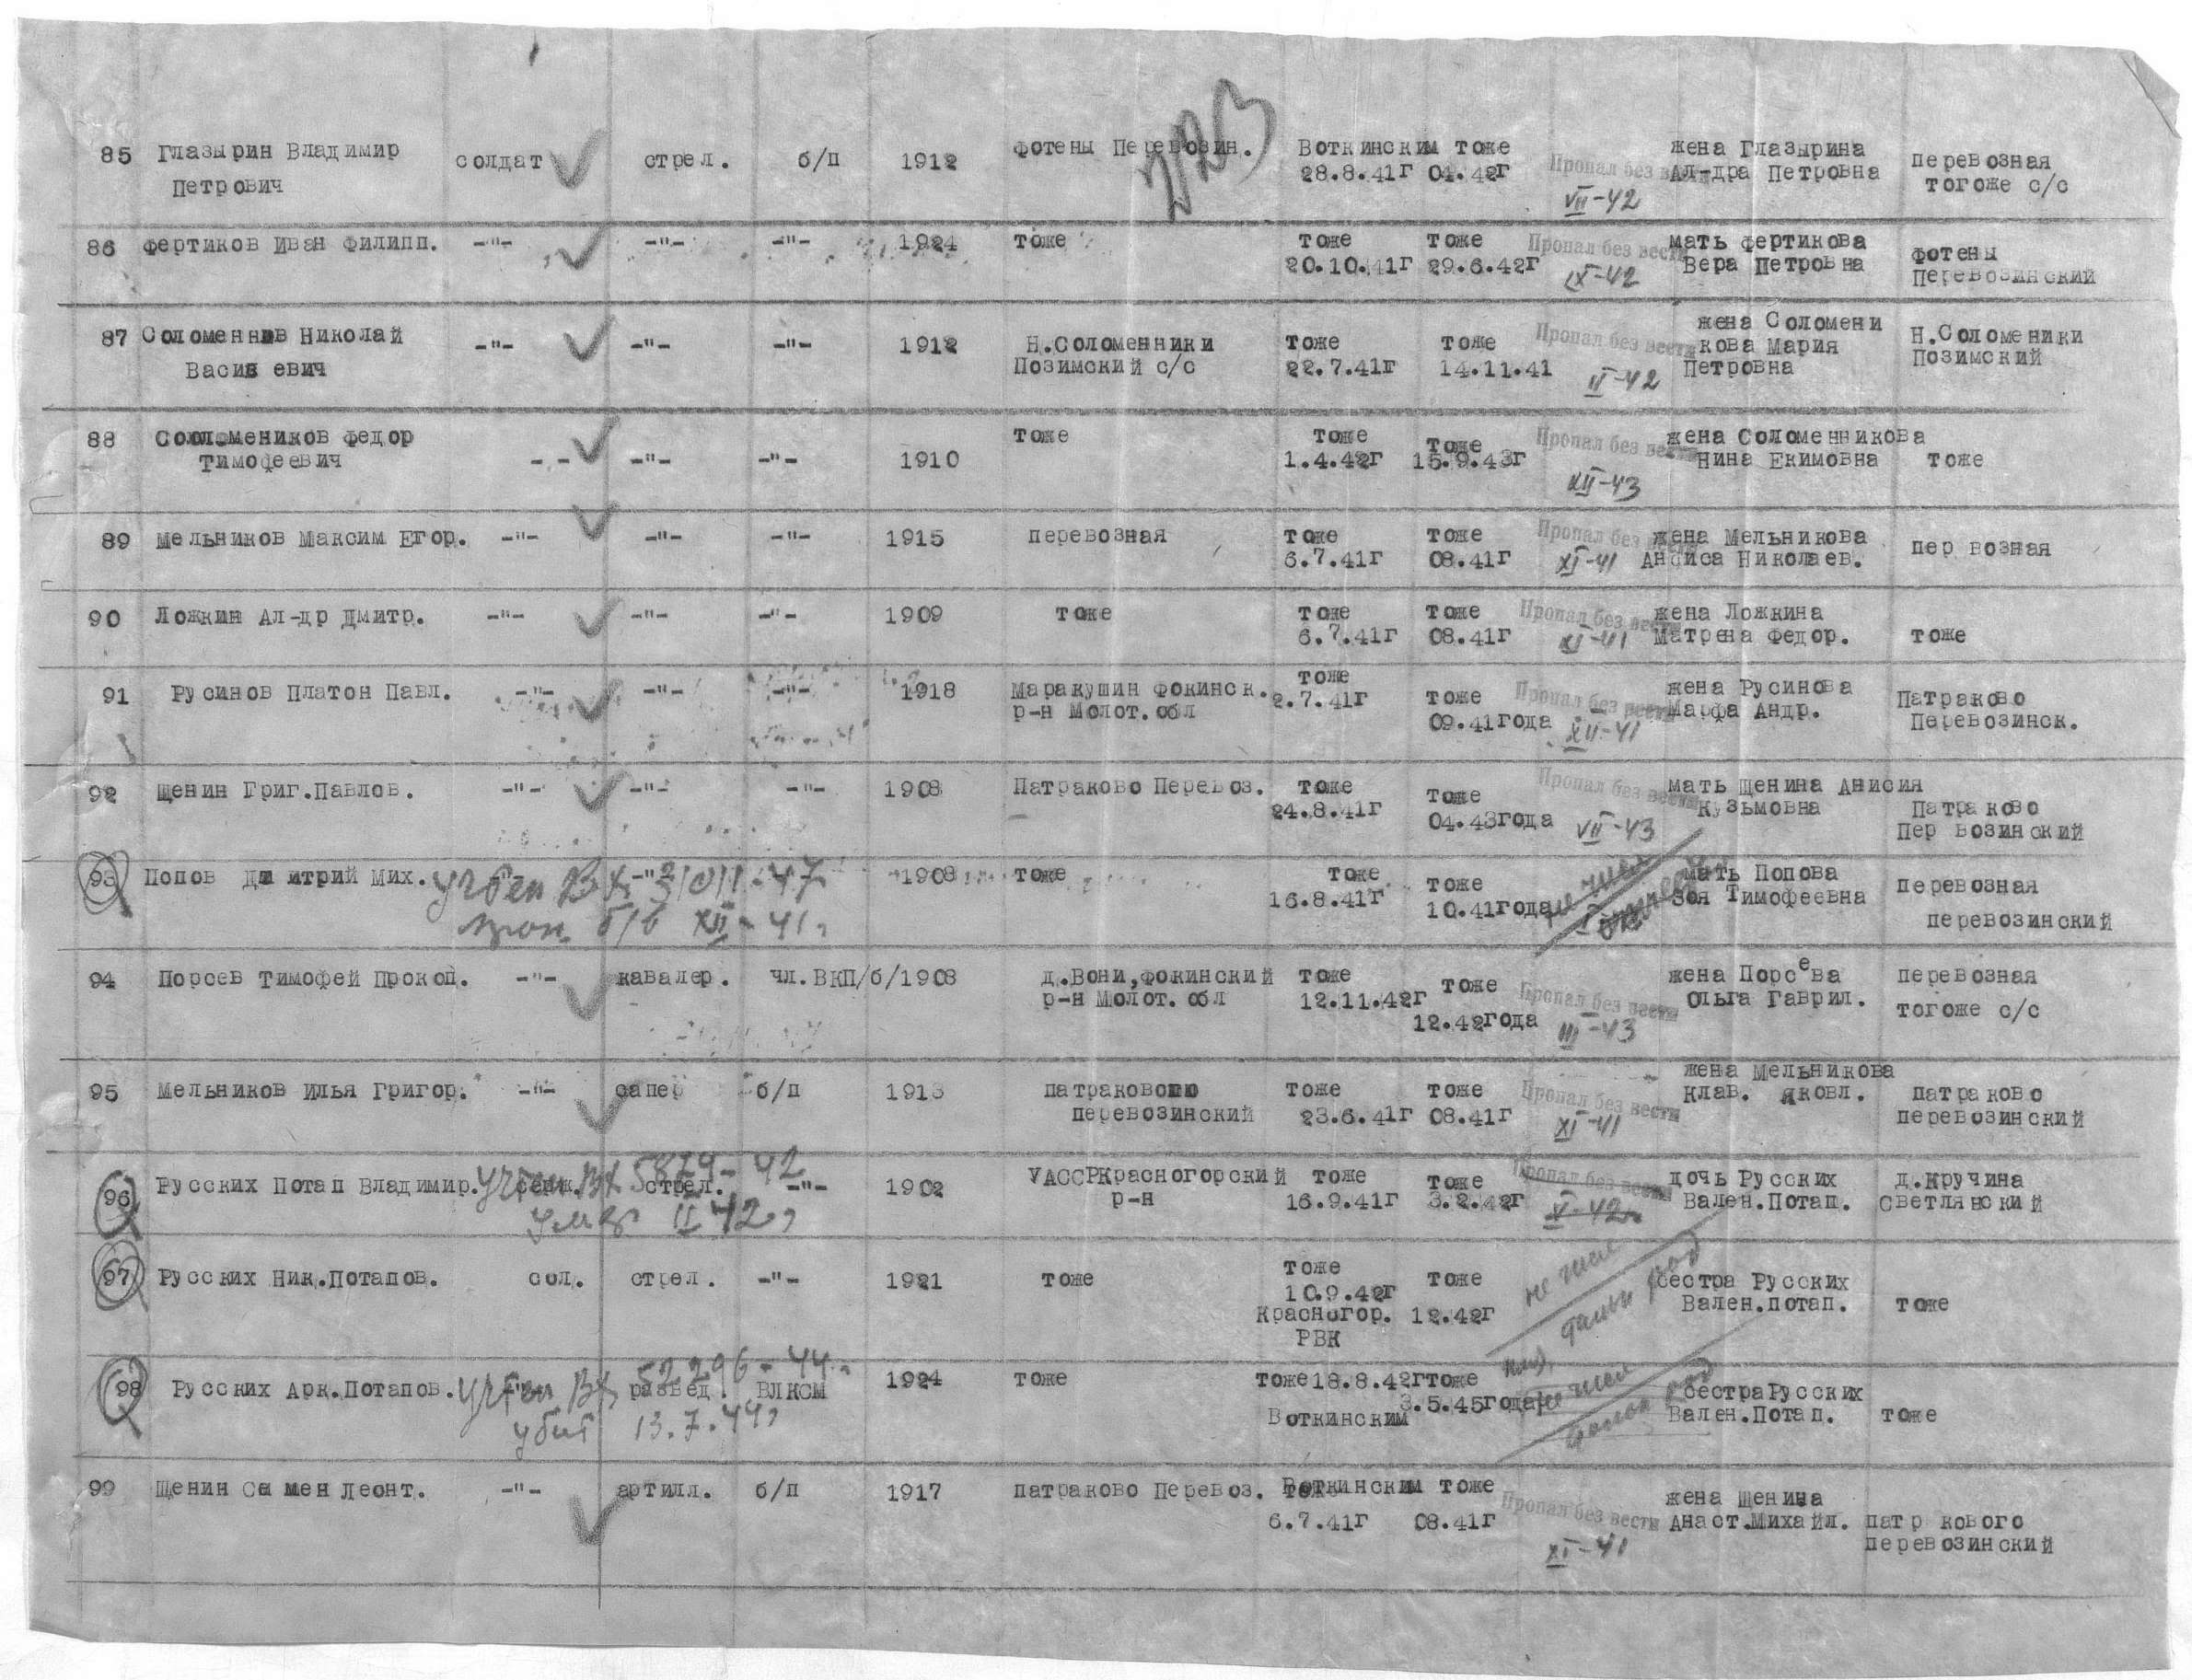 2123
85 Глазырин Владимир солдат стрел. б/п 1912 фотены Перевозин. Воткинским тоже жена Глазырина перевозная
Петрович 28.8.41г 04.42г Пропал без вести Ал-дра Петровна тогоже с/с
VII-42
86 фертиков Иван филипп. -"- -"- -"- 1924 тоже тоже тоже Пропал без вести мать фертикова фотены
20.10.41г 29.6.42г IX-42 Вера Петровна Перевозинский
87 Соломенннов Николай -"- -"- -"- 1912 Н.Соломенники тоже тоже Пропал без вести жена Соломени Н.Соломеники
Васив евич Позимский с/с 22.7.41г 14.11.41 II-42 кова Мария Позимский
Петровна
88 Сооломеников федор тоже тоже тоже Пропал без вести жена Соломенникова
Тимофеевич - - -"- -"- 1910 1.4.42г 15.9.43г Нина Екимовна тоже
XII-43
89 мельников Максим Егор. -"- -"- -"- 1915 перевозная тоже тоже Пропал без вести жена Мельникова пер возная
6.7.41г 08.41г XI-41 Анфиса Николаев.
90 Ложкин Ал-др Дмитр. -"- -"- -"- 1909 тоже тоже тоже Пропал без вести жена Ложкина
6.7.41г 08.41г XI-41 Матрена Федор. тоже
91 Русинов Платон Павл. -"- -"- -"- 1918 Маракушин фокинск. тоже тоже Пропал без вести жена Русинова Патраково
р-н Молот.обл 2.7.41г 09.41года XII-41 Марфа Андр. Перевозинск.
92 Щенин Григ.Павлов. -"- -"- -"- 1908 Патраково Перевоз. тоже тоже Пропал без вести мать Щенина Анисия
24.8.41г 04.43года VII-43 Кузьмовна Патраково
Пер возинский
93 Попов Дмитрий Мих. -"- учтен Вх -47 1908 тоже тоже тоже мать Попова перевозная
16.8.41г 10.41года Зоя Тимофеевна перевозинский
проп б/в XII-41г
94 Порсев Тимофей Прокоп. -"- кавалер. чл.ВКП/б/1908 д.Вони,фокинский тоже тоже Пропал без вести жена Порсева перевозная
р-н Молот. обл 12.11.42г 12.42года III-43 Ольга Гаврил. тогоже с/с
95 мельников Илья Григор. -"- сапер б/п 1913 патраковсню тоже тоже Пропал без вести жена мельникова
перевозинский 23.6.41г 08.41г XI-41 Клав. яковл. патраково
перевозинский
96 Русских Потап Владимир. учтен Вх 5829-42 стрел. -"- 1902 УАССРКрасногорский тоже тоже Пропал без вести дочь Русских д.Кручина
р-н 16.9.41г 3.2.42г V-42г Вален.Потап. Светлянский
умер II 42г
97 Русских Ник.Потапов. сол. стрел. -"- 1921 тоже тоже тоже сестра Русских
10.9.42г 12.42г Вален.потап. тоже
Красногор.
РВК
98 Русских Арк.Потапов. учтен Вх 52296-44г развед. ВЛКСМ 1924 тоже тоже18.8.42гтоже сестраРусских
убит 13.7.44г Воткинским 3.5.45года Вален.Потап. тоже
99 Щенин Семен Леонт. -"- артилл. б/п 1917 патраково Перевоз. Воткинским тоже Пропал без вести жена Щенина
6.7.41г 08.41г XI-41 Анаст.Михайл. патр кового
перевозинский